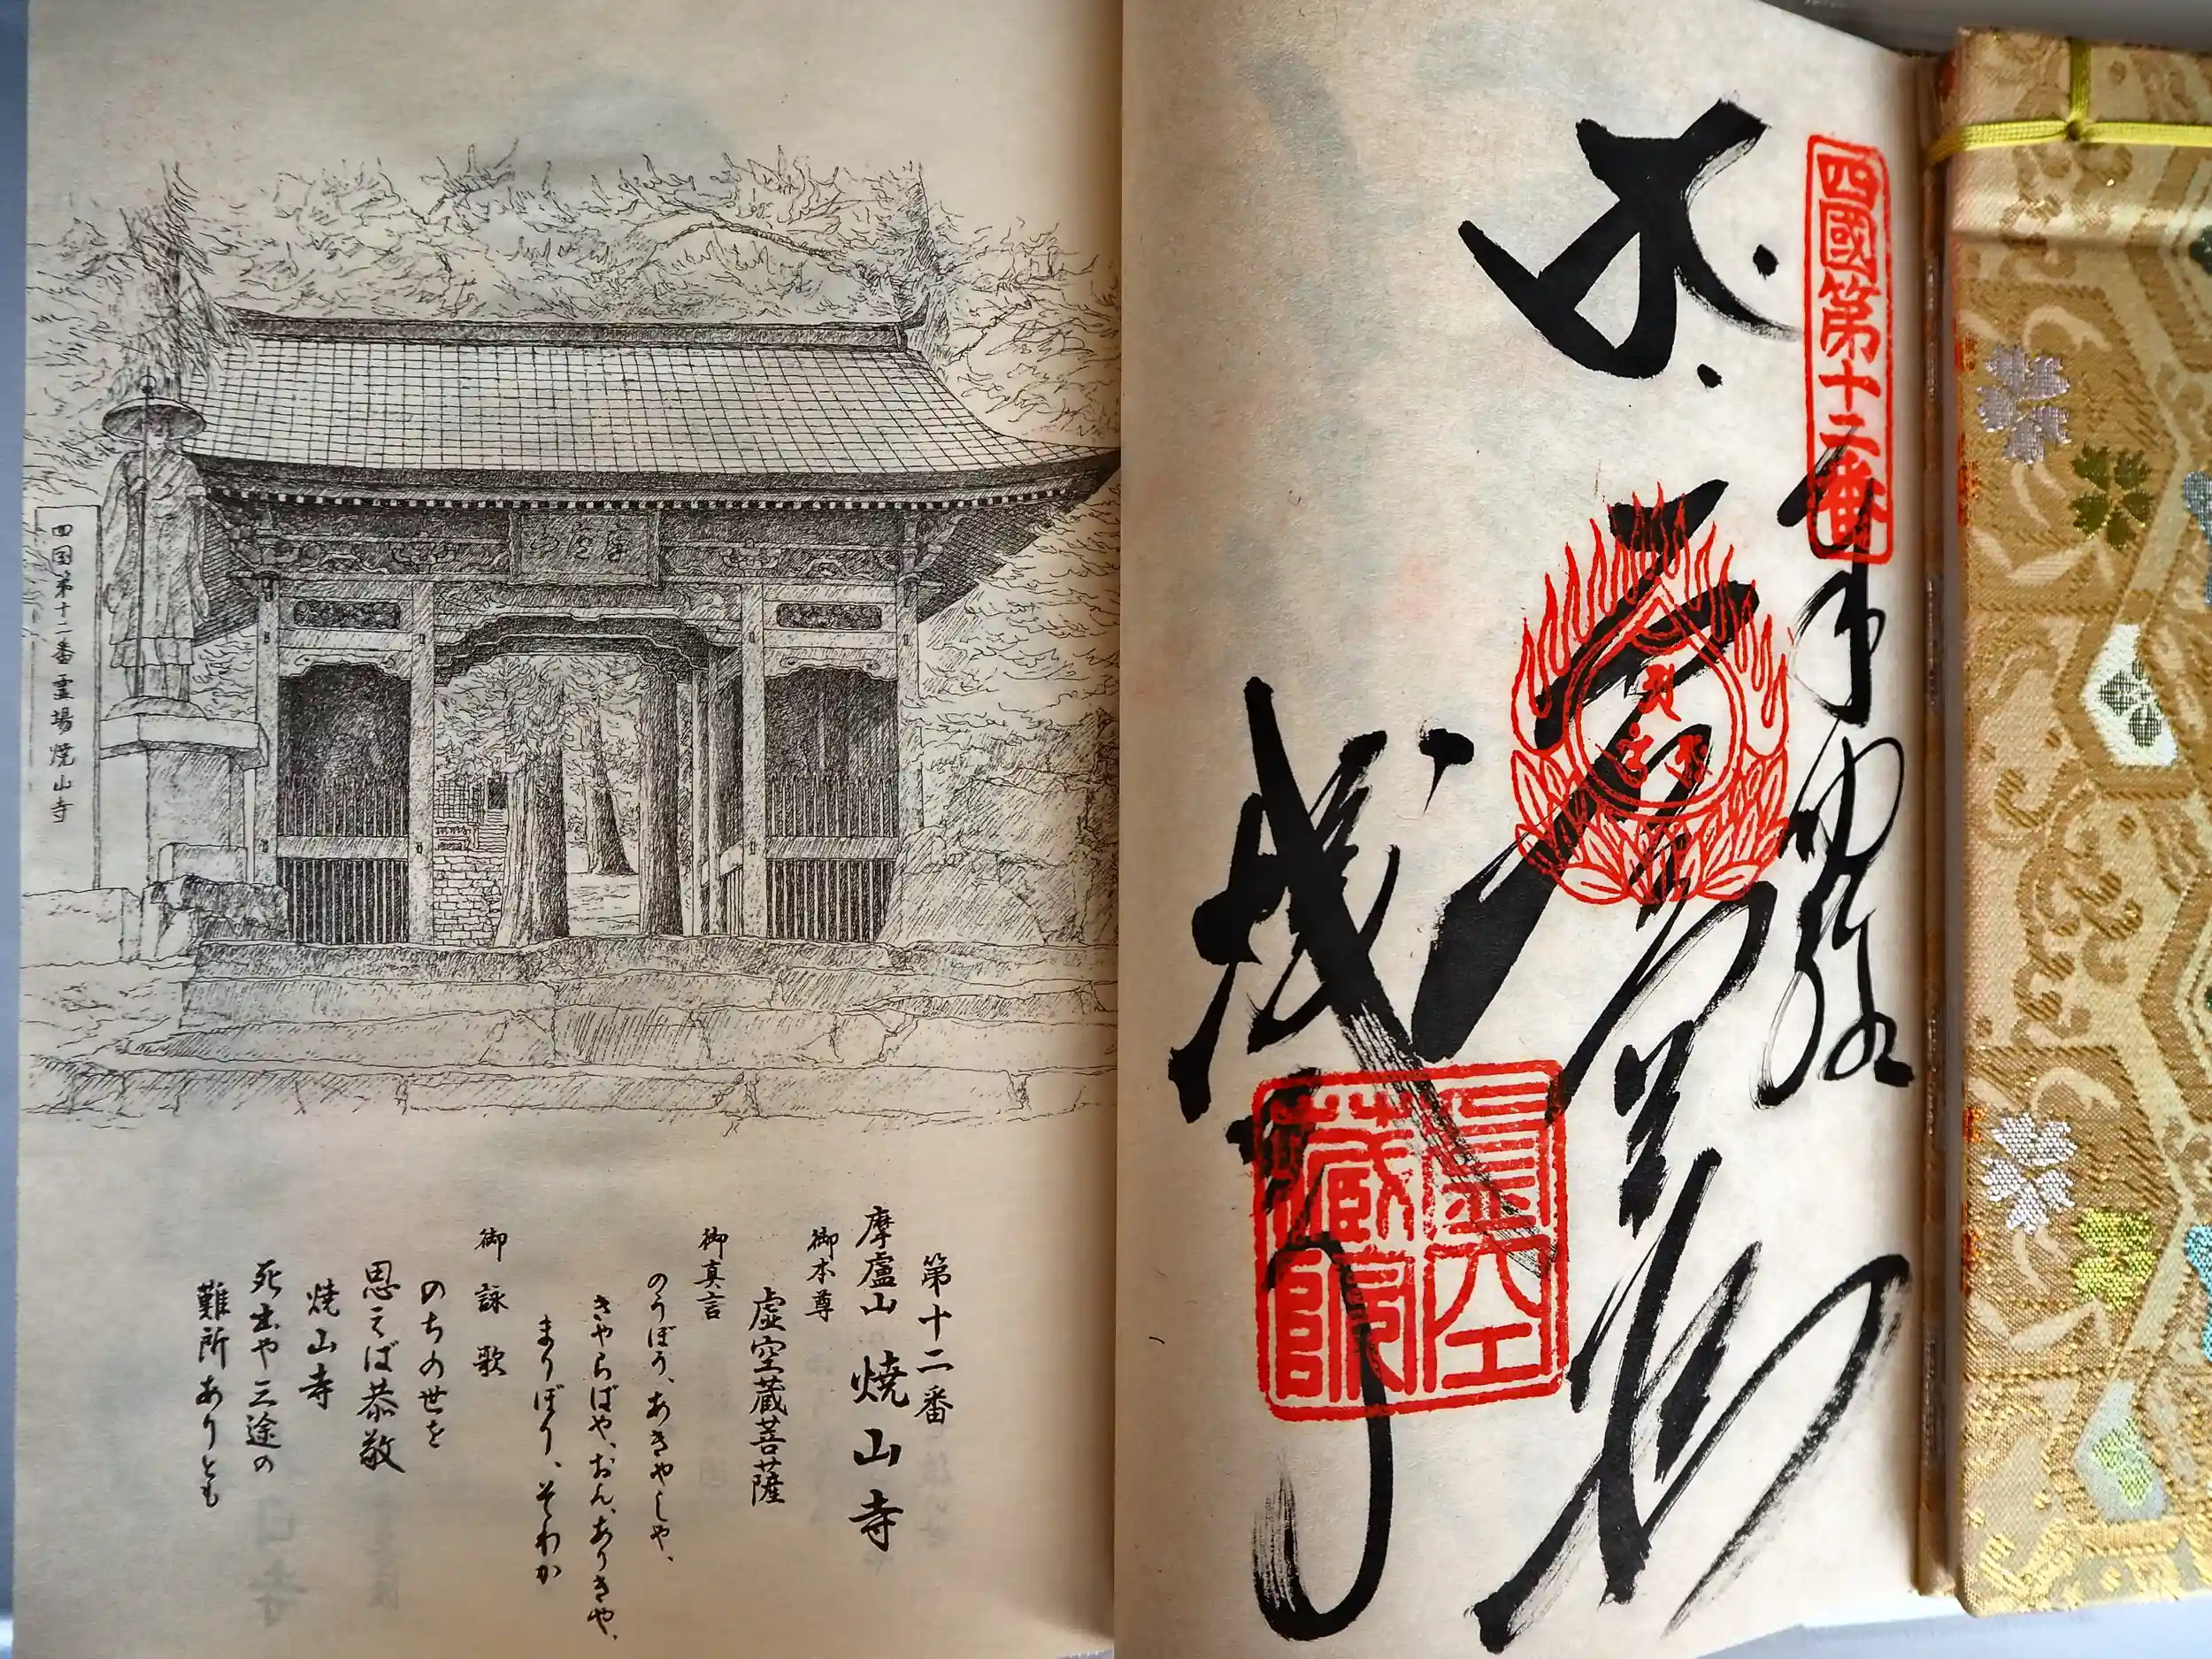 四國第十二番
奉納経
虚空蔵院
摩廬山
四国第十二番霊場焼山寺
第十二番
摩廬山 焼山寺
御本尊
虚空蔵菩薩
御真言
のうぼう、あきゃしゃ、
きゃらばや、おん、ありきゃ、
まりぼり、そわか
御詠歌
のちの世を
思えば恭敬
焼山寺
死出や三途の
難所ありとも